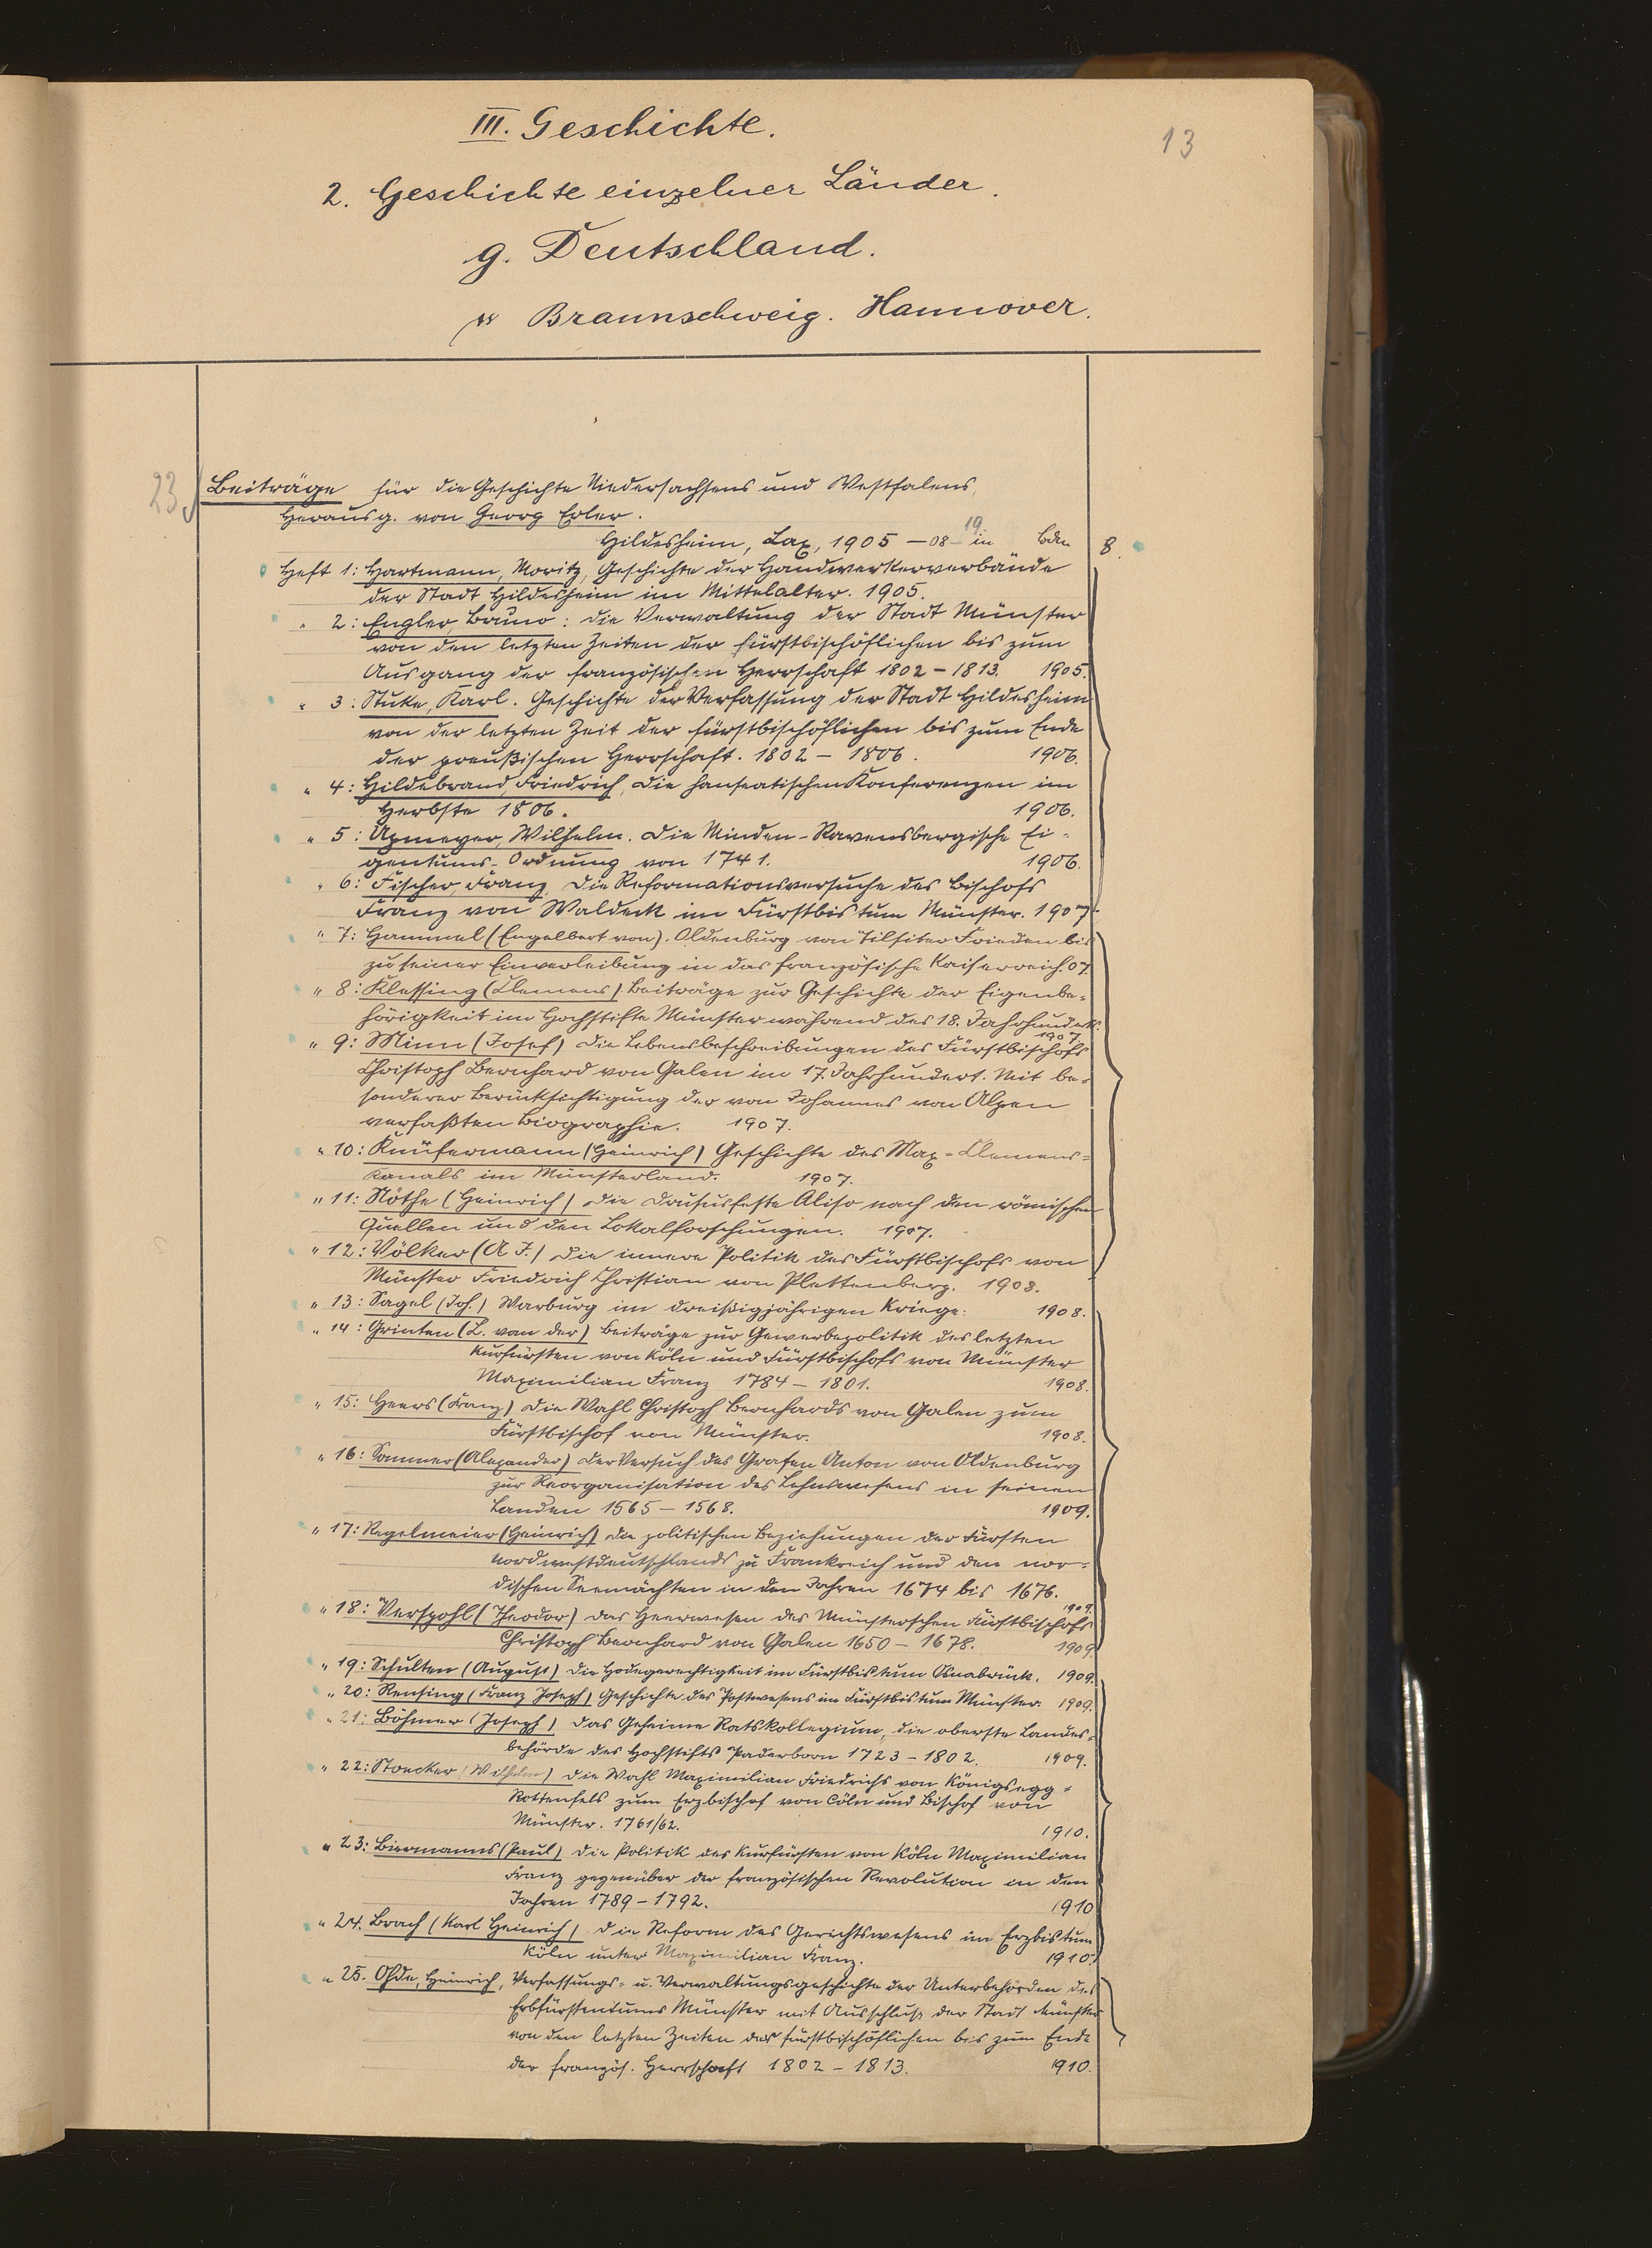 13
III. Geschichte.
2. Geschichte einzelner Länder.
g. Deutschland.
Braunschweig. Hannover.
23.
Beiträge für die Geschichte Niedersachsens und Westfalens,
Herausg. von Georg Erler.
Hildesheim, Lax, 1905 – 08 – 19 in Bdn 8.
Heft 1: Hartmann, Moritz, Geschichte der Handwerkerverbände
der Stadt Hildesheim im Mittelalter. 1905.
" 2: Engler, Bruno: Die Verwaltung der Stadt Münster
von den letzten Zeiten der fürstbischöflichen bis zum
Ausgang der französischen Herrschaft 1802 – 1813. 1905.
" 3: Stuke, Karl. Geschichte der Verfassung der Stadt Hildesheim
von der letzten Zeit der fürstbischöflichen bis zum Ende
der preußischen Herrschaft. 1802 – 1806. 1906.
" 4: Hildebrand, Friedrich, Die hanseatischen Konferenzen im
Herbste 1806. 1906.
" 5: Upmeyer, Wilhelm. Die Minden-Ravensbergische Ei-
gentums-Ordnung von 1741. 1906.
" 6: Fischer, Franz, Die Reformationsversuche des Bischofs
Franz von Waldeck im Fürstbistum Münster. 1907.
" 7: Hammel (Engelbert von). Oldenburg von Tilsiter Frieden bis
zu seiner Einverleibung in das französische Kaiserreich. 07.
" 8: Klessing (Clemens) Beiträge zur Geschichte der Eigenbe-
hörigkeit im Hochstifte Münster während des 18. Jahrhunderts.
1907.
" 9: Minn (Josef) Die Lebensbeschreibungen des Fürstbischofs
Christoph Bernhard von Galen im 17. Jahrhundert. Mit be-
sonderer Berücksichtigung der von Johannes von Alpen
verfaßten Biographie. 1907.
" 10: Knüfermann (Heinrich) Geschichte des Max-Clemens-
Kanals im Münsterland. 1907.
" 11: Nöthe (Heinrich) Die Drususfeste Aliso nach den römischen
Quellen und den Lokalforschungen. 1907.
" 12: Völker (A J.) Die innere Politik des Fürstbischofs von
Münster Friedrich Christian von Plettenberg. 1908.
" 13: Sagel (Joh.) Warburg im dreißigjährigen Kriege. 1908.
" 14: Grinten (L. van der) Beiträge zur Gewerbepolitik des letzten
Kurfürsten von Köln und Fürstbischofs von Münster
Maximilian Franz 1784 – 1801. 1908.
" 15: Heers (Franz) Die Wahl Christoph Bernhards von Galen zum
Fürstbischof von Münster. 1908.
" 16: Sommer (Alexander) Der Versuch des Grafen Anton von Oldenburg
zur Reorganisation des Lehnswesens in seinen
Landen 1565 – 1568. 1909.
" 17: Regelmeier (Heinrich) Die politischen Beziehungen der Fürsten
Nordwestdeutschlands zu Frankreich und den nor-
dischen Seemächten in den Jahren 1674 bis 1676.
1909.
" 18: Verspohl (Theodor) Das Heerwesen des Münsterschen Fürstbischofs
Christoph Bernhard von Galen 1650 – 1678. 1909.
" 19: Schulten (August) Die Hodegerechtigkeit im Fürstbistum Osnabrück. 1909.
" 20: Rensing (Franz Joseph) Geschichte des Postwesens im Fürstbistum Münster. 1909.
" 21: Böhmer (Joseph) Das Geheime Ratskollegium, die oberste Landes-
behörde des Hochstifts Paderborn 1723 – 1802. 1909.
" 22: Stoecker (Wilhelm) Die Wahl Maximilian Friedrichs von Königsegg-
Rottenfels zum Erzbischof von Cöln und Bischof von
Münster. 1761/62. 1910.
" 23: Biermanns (Paul) Die Politik des Kurfürsten von Köln Maximilian
Franz gegenüber der französischen Revolution in den
Jahren 1789 – 1792. 1910
" 24. Brach (Karl Heinrich) Die Reform des Gerichtswesens im Erzbistum
Köln unter Maximilian Franz. 1910.
" 25. Ohde, Heinrich, Verfassungs- u. Verwaltungsgeschichte der Unterbehörden des
Erbfürstentums Münster mit Ausschluß der Stadt Münster
von den letzten Zeiten der fürstbischöflichen bis zum Ende
der französ. Herrschaft 1802 – 1813. 1910.